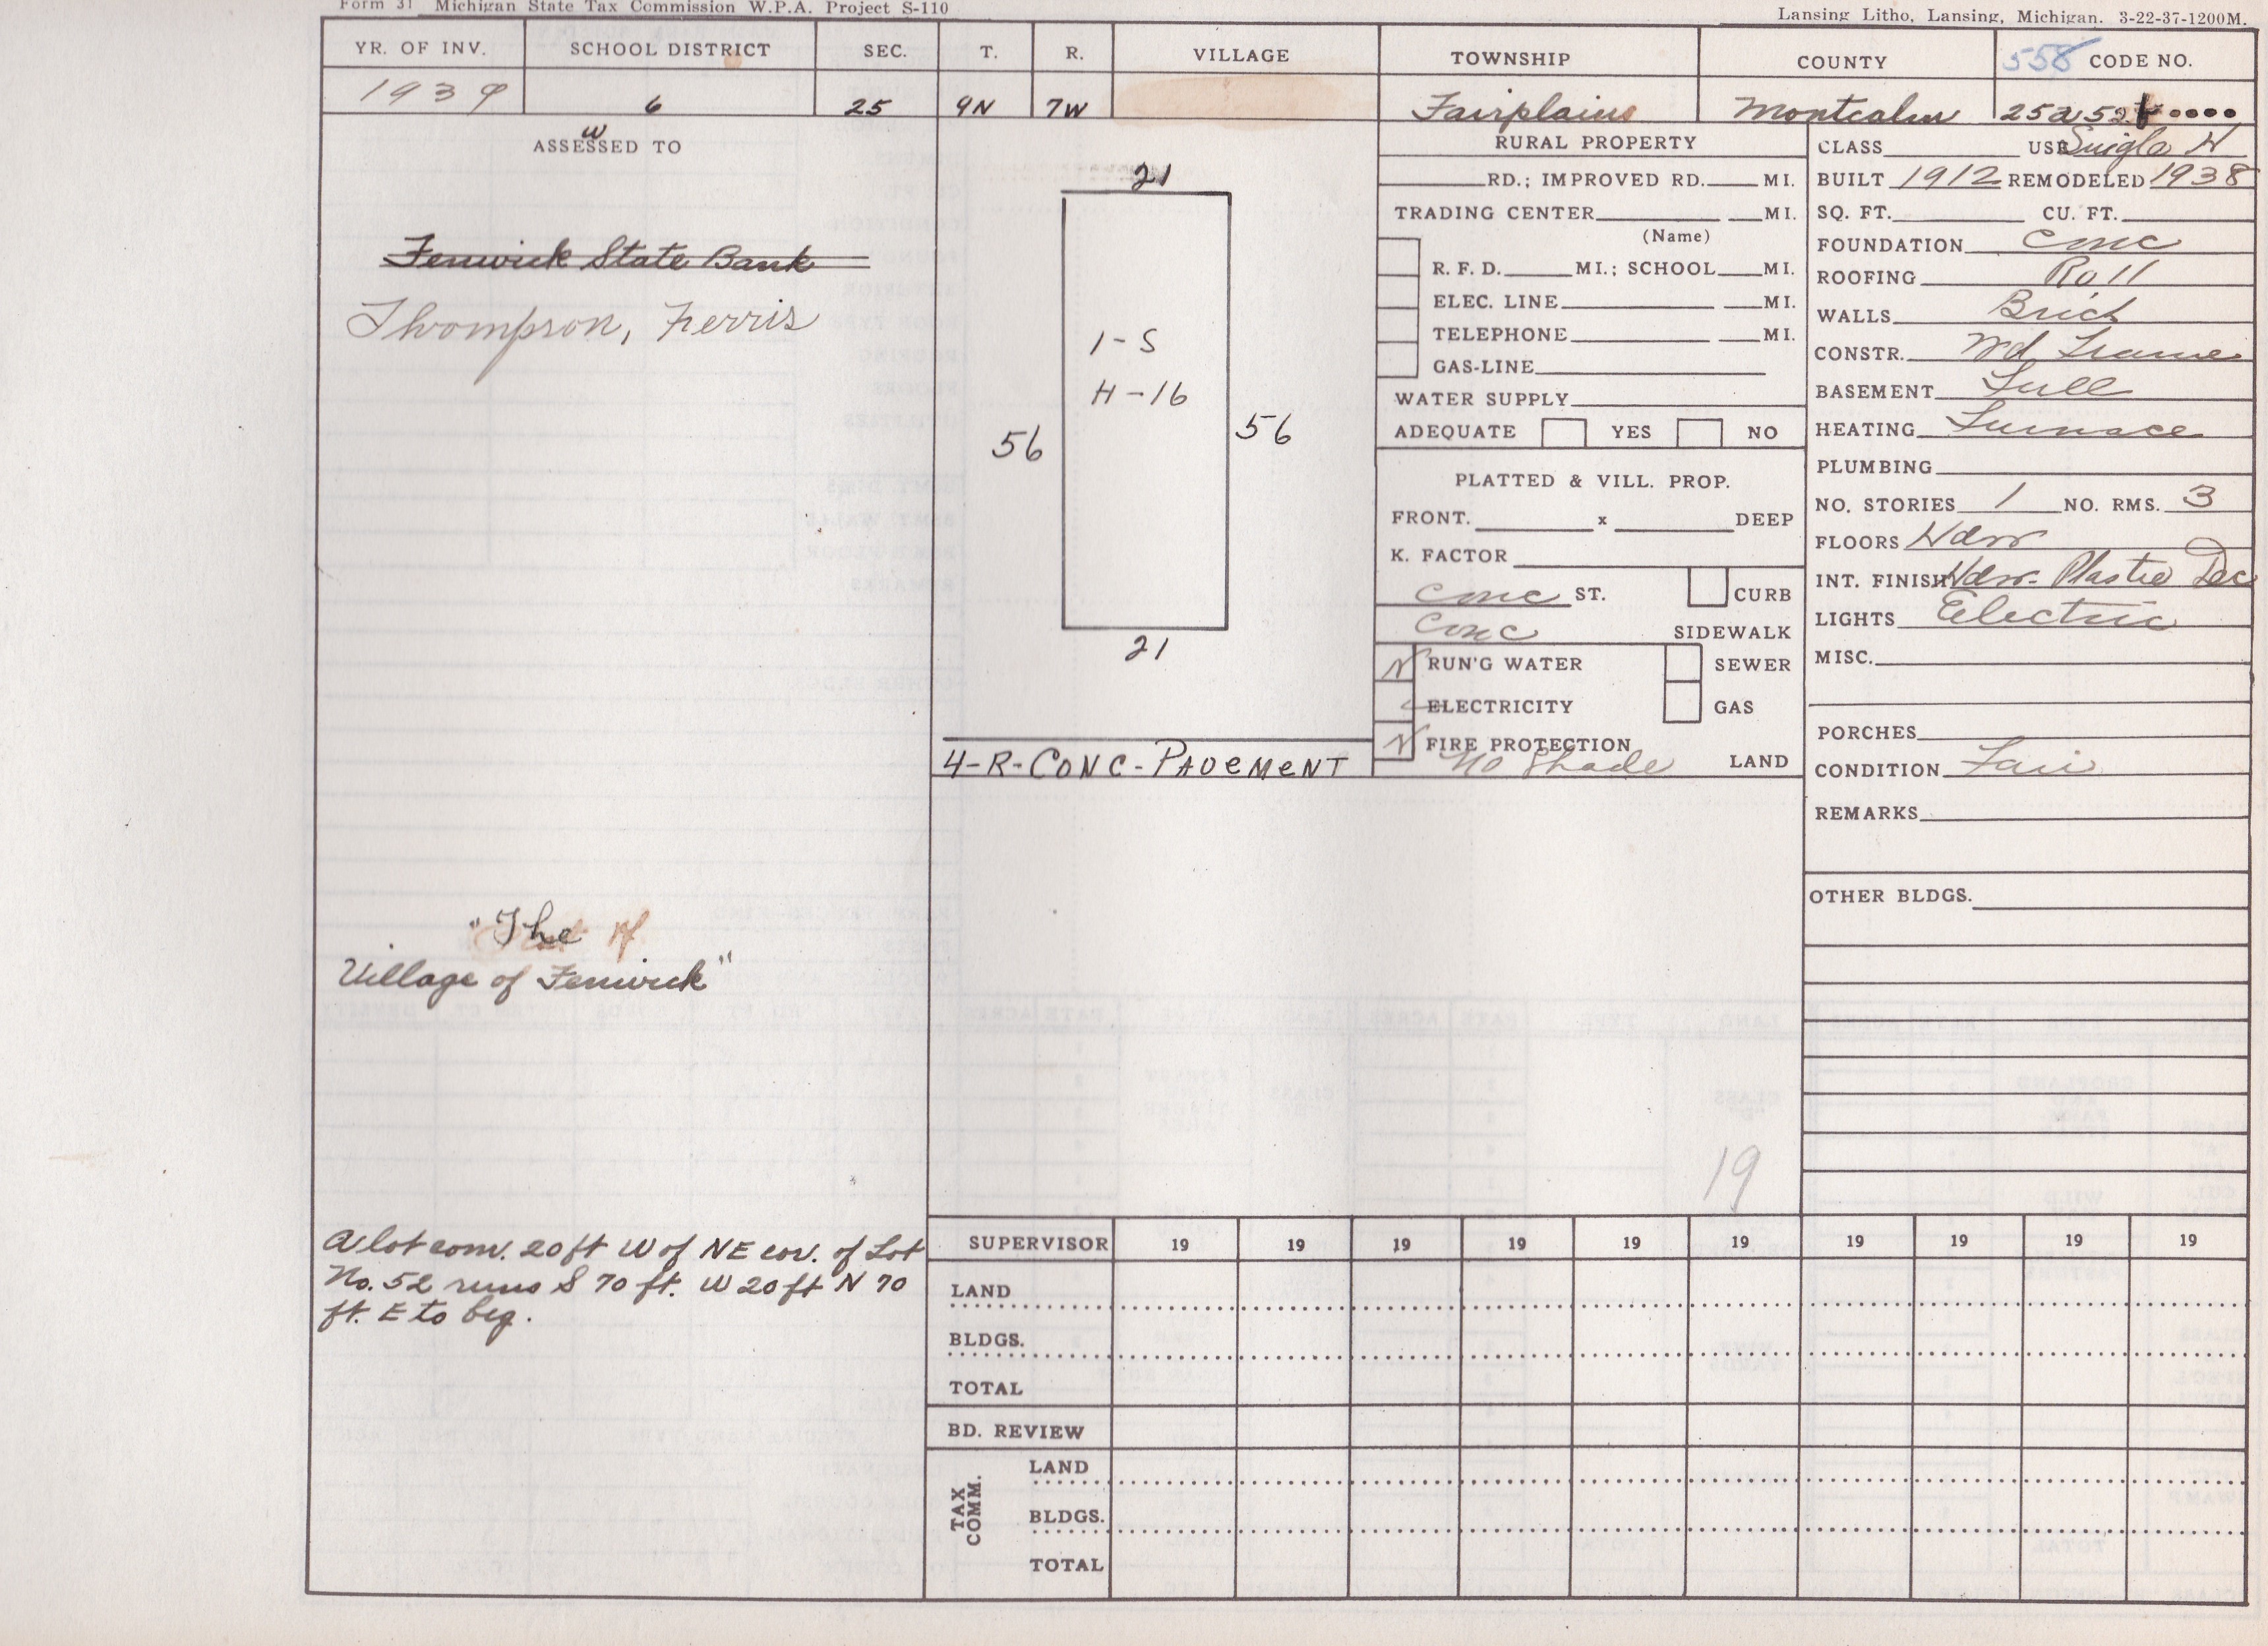 Form 31 Michigan State Tax Commission W.P.A. Project S-110
Lansing Litho, Lansing, Michigan. 3-22-37-1200M.
YR. OF INV. SCHOOL DISTRICT SEC. T. R. VILLAGE TOWNSHIP COUNTY 558 CODE NO.
1939 6 25 9N 7W Fairplains Montcalm
ASSESSED TO
W
Fenwick State Bank
Thompson, Ferris
"The
Village of Fenwick"
A lot com. 20 ft W of NE cor. of Lot
No. 52 runs S 70 ft. W 20 ft N 70
ft. E to beg.
21
1-S
H-16
56 56
21
4-R-CONC-PAVEMENT
RURAL PROPERTY
RD.; IMPROVED RD. MI.
TRADING CENTER MI.
(Name)
R. F. D. MI.; SCHOOL MI.
ELEC. LINE MI.
TELEPHONE MI.
GAS-LINE
WATER SUPPLY
ADEQUATE YES NO
PLATTED & VILL. PROP.
FRONT. x DEEP
K. FACTOR
Conc ST. CURB
Conc SIDEWALK
N RUN'G WATER SEWER
ELECTRICITY GAS
N FIRE PROTECTION
No Shade LAND
CLASS USE Single H
BUILT 1912 REMODELED 1938
SQ. FT. CU. FT.
FOUNDATION Conc
ROOFING Roll
WALLS Brick
CONSTR. Wd Frame
BASEMENT Full
HEATING Furnace
PLUMBING
NO. STORIES 1 NO. RMS. 3
FLOORS Hdw
INT. FINISH Hdw. Plaster Dec
LIGHTS Electric
MISC.
PORCHES
CONDITION Fair
REMARKS
OTHER BLDGS.
19
SUPERVISOR 19 19 19 19 19 19 19 19 19 19
LAND
BLDGS.
TOTAL
BD. REVIEW
TAX COMM.
LAND
BLDGS.
TOTAL